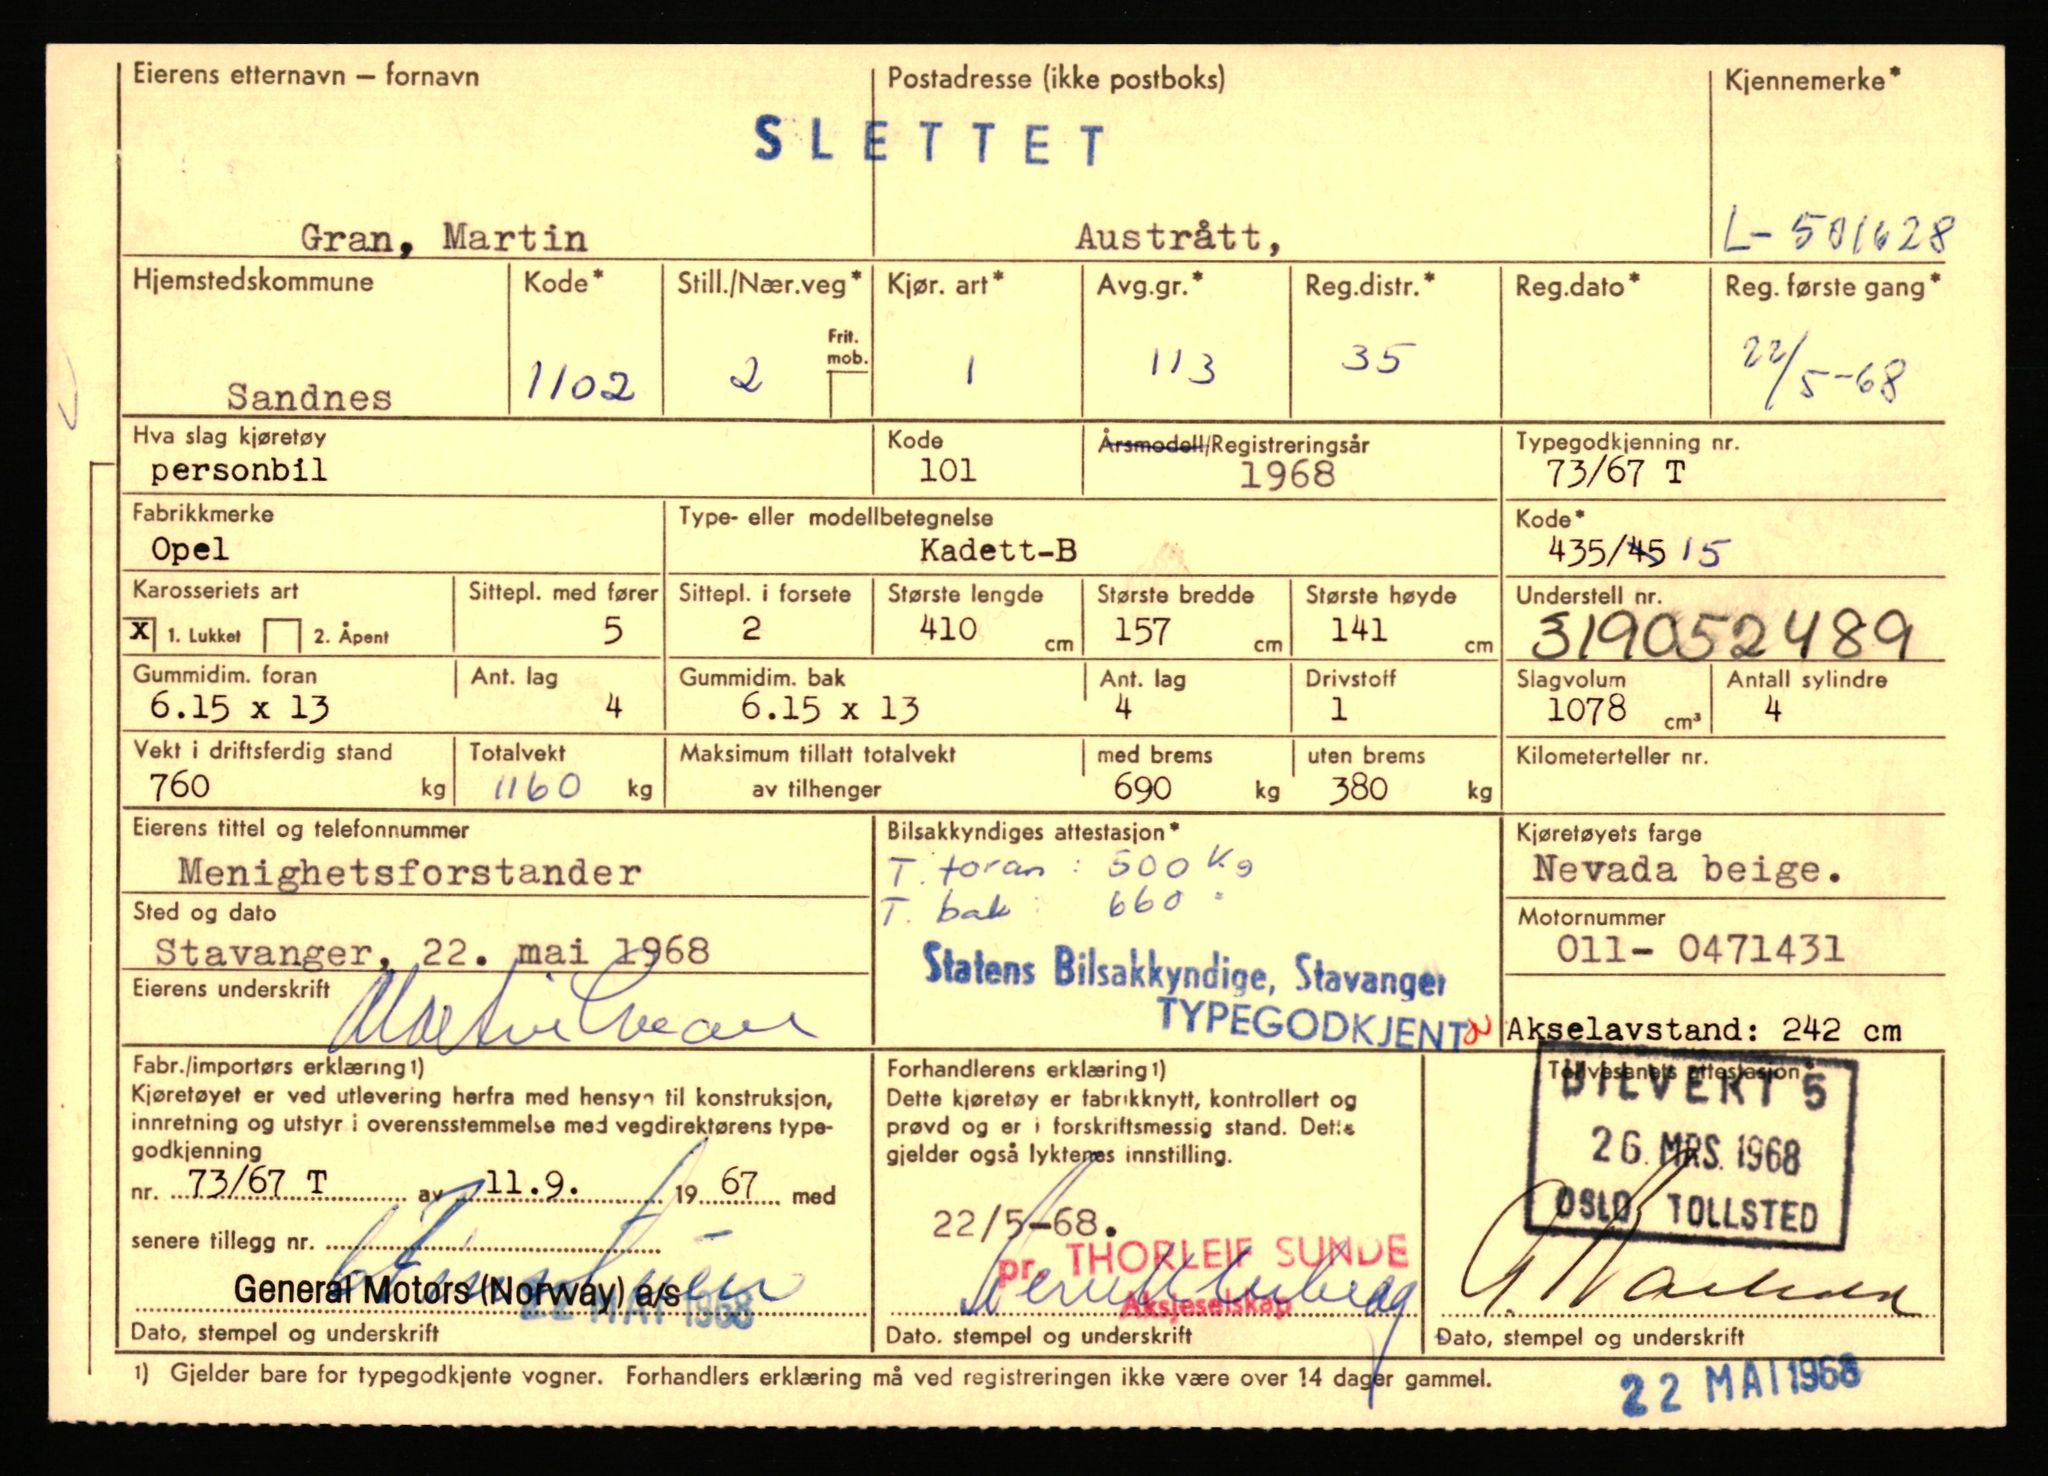 Eierens etternavn — fornavn
Postadresse (ikke postboks)
Kjennemerke*
SLETTET
Gran, Martin
Austrått,
L- 501628
Hjemstedskommune
Kode*
Still./Nær.veg*
Kjør. art*
Avg.gr.*
Reg.distr.*
Reg.dato*
Reg. første gang*
Frit.
mob.
Sandnes
1102
2
1
113
35
22/5-68
Hva slag kjøretøy
Kode
Årsmodell/Registreringsår
Typegodkjenning nr.
personbil
101
1968
73/67 T
Fabrikkmerke
Type- eller modellbetegnelse
Kode*
Opel
Kadett-B
435/45 15
Karosseriets art
Sittepl. med fører
Sittepl. i forsete
Største lengde
Største bredde
Største høyde
Understell nr.
X 1. Lukket 2. Åpent
5
2
410 cm
157 cm
141 cm
319052489
Gummidim. foran
Ant. lag
Gummidim. bak
Ant. lag
Drivstoff
Slagvolum
Antall sylindre
6.15 x 13
4
6.15 x 13
4
1
1078 cm³
4
Vekt i driftsferdig stand
Totalvekt
Maksimum tillatt totalvekt
med brems
uten brems
Kilometerteller nr.
760 kg
1160 kg
av tilhenger
690 kg
380 kg
Eierens tittel og telefonnummer
Bilsakkyndiges attestasjon*
Kjøretøyets farge
Menighetsforstander
T. foran : 500 Kg
Nevada beige.
Sted og dato
T. bak : 660 "
Motornummer
Stavanger, 22. mai 1968
Statens Bilsakkyndige, Stavanger
011- 0471431
Eierens underskrift
Martin Gran
TYPEGODKJENT
Akselavstand: 242 cm
Fabr./importørs erklæring1)
Kjøretøyet er ved utlevering herfra med hensyn til konstruksjon,
innretning og utstyr i overensstemmelse med vegdirektørens type-
godkjenning
nr. 73/67 T av 11.9. 19 67 med
senere tillegg nr.
General Motors (Norway) a/s
22 MAI 1968
Dato, stempel og underskrift
Forhandlerens erklæring1)
Dette kjøretøy er fabrikknytt, kontrollert og
prøvd og er i forskriftsmessig stand. Dette
gjelder også lyktenes innstilling.
22/5-68.
pr. THORLEIF SUNDE
Aksjeselskap
Dato. stempel og underskrift
Tollvesenets attestasjon*
BILVERT 5
26. MRS. 1968
OSLO TOLLSTED
Dato, stempel og underskrift
1) Gjelder bare for typegodkjente vogner. Forhandlers erklæring må ved registreringen ikke være over 14 dager gammel.
22 MAI 1968